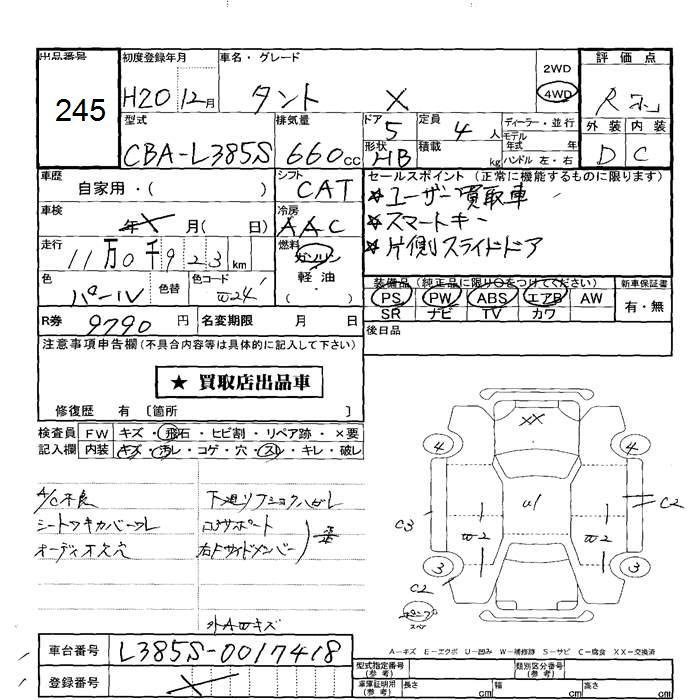 出品番号
245
初度登録年月
H20 12月
車名・グレード
タント X
2WD
4WD
評価点
R
外装 内装
D C
型式
CBA-L385S
排気量
660cc
ドア
5
形状
HB
定員
4人
積載
kg
ディーラー・並行
モデル年式 年
ハンドル 左・右
車歴
自家用・( )
シフト
CAT
セールスポイント(正常に機能するものに限ります)
☆ユーザー買取車
☆スマートキー
☆片側スライドドア
車検
年 X 月( 日)
冷房
AAC
走行
11万0千923km
燃料
ガソリン
軽油
( ・ )
色
パール
色替
色コード
W24
装備品(純正品に限り○をつけてください)
PS PW ABS エアB AW
SR ナビ TV カワ
新車保証書
有・無
R券
9790円
名変期限 月 日
後日品
注意事項申告欄(不具合内容等は具体的に記入して下さい)
★ 買取店出品車
修復歴 有 〔箇所 〕
検査員記入欄
FW キズ・飛石・ヒビ割・リペア跡・×要
内装 キズ・汚レ・コゲ・穴・スレ・キレ・破レ
A/C不良
シートワキカバーワレ
オーディオ欠穴
コアサポート
右Fサイドメンバー
外AWキズ
XX
4
4
U1
C2
C3
W2
W2
3
3
C2
A−キズ E−エクボ U−凹み W−補修跡 S−サビ C−腐食 XX−交換済
車台番号
L385S-0017418
登録番号
X
型式指定番号(参考)
類別区分番号(参考)
車庫証明用(参考)
長さ cm
幅 cm
高さ cm